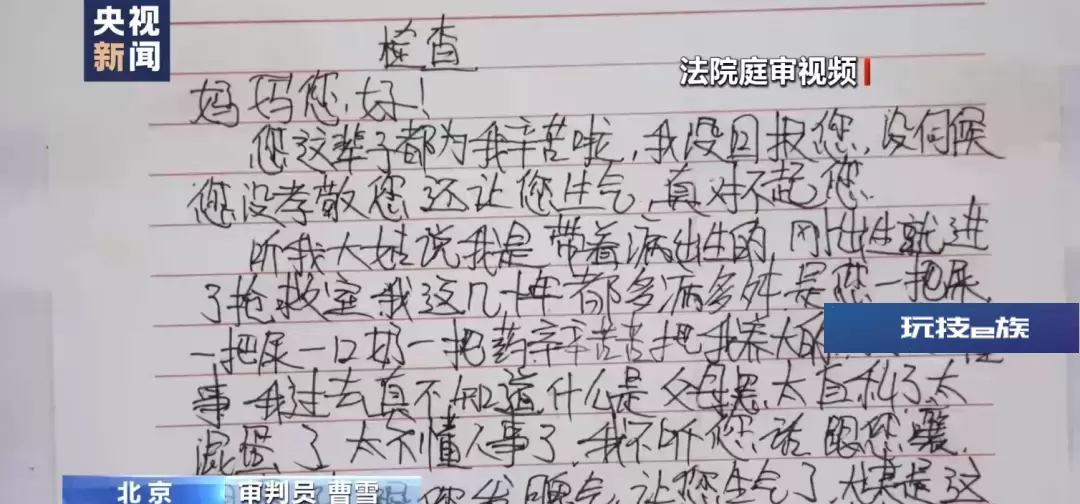 央视
新闻
检查
法院庭审视频
妈妈您好!
您这辈子都为我辛苦啦,我没回报您,没伺候
您没孝敬您还让您生气,真对不起您.
听我大姐说我是带着病出生的 刚出生就进
了抢救室.我这几十年都多病多灾是您一把尿
玩技e族
一把尿一口奶一把药辛辛苦苦把我养大的
事.我过去真不知道什么是父母恩,太自私了,太
混蛋了 太不懂人事了,我不听您话 跟您嚷
您发脾气,让您生气了,尤其是这
北京
审判员 曹雪